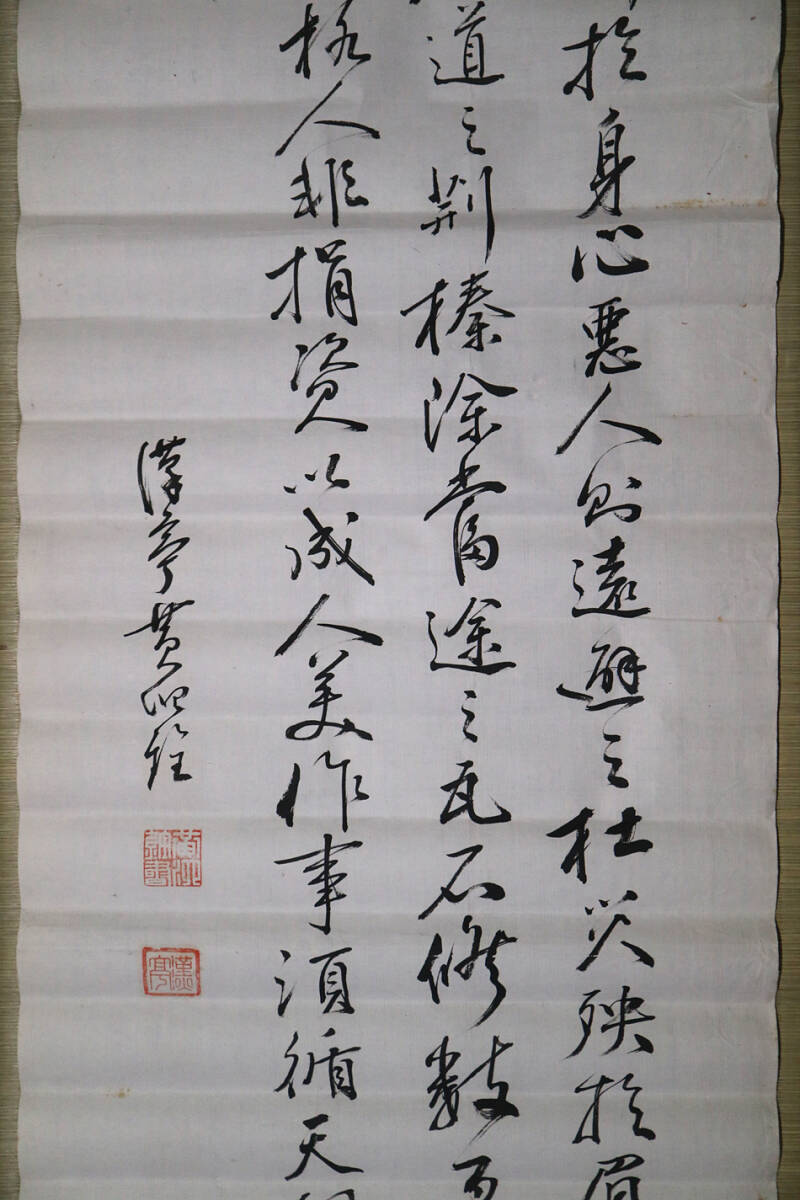 於身心惡人則遠避之杜災殃於眉
道之荆榛除當途之瓦石修數百
格人非捐資以成人美作事須循天
漢亭黄照詮
漢亭